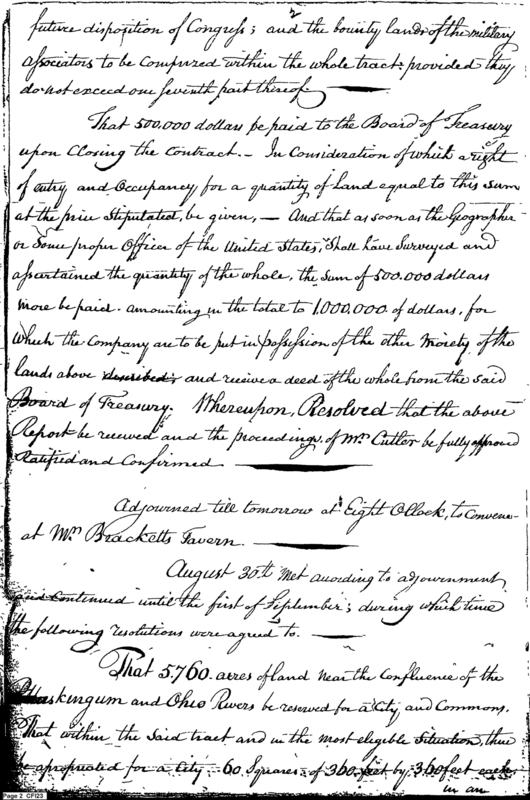 2
future disposition of Congress; and the bounty lands of the military
associators to be Comprized within the whole tract: provided they
do not exceed one seventh part thereof
That 500.000 dollars be paid to the Board of Treasury
upon Closing the Contract. – In Consideration of which a right
of entry and Occupancy for a quantity of Land equal to this sum
at the price Stipulated, be given, – And that as soon as the Geographer
or Some proper Officer of the United States, Shall have Surveyed and
ascertained the quantity of the whole, the Sum of 500.000 dollars
more be paid. amounting in the total to 1.000.000. of dollars, for
which the Company are to be put in possession of the other Moiety of the
lands above described; and receive a deed of the whole from the said
Board of Treasury. Whereupon, Resolved that the above
Report be received and the proceedings of Mr. Cutler be fully approved
Ratified and Confirmed
Adjourned till tomorrow at Eight OClock, to Convene
at Mrs. Bracketts Tavern
August 30th Met according to adjournment
and Continued until the first of September; during which time
the following resolutions were agreed to.
That 5.760. acres of land near the Confluence of the
Muskingum and Ohio Rivers be reserved for a City and Commons.
That within the Said tract and in the most elegible Situation, there
be apropriated for a City 60 Squares of 360 feet by 360 feet each.
in an
Page 2 CFI23